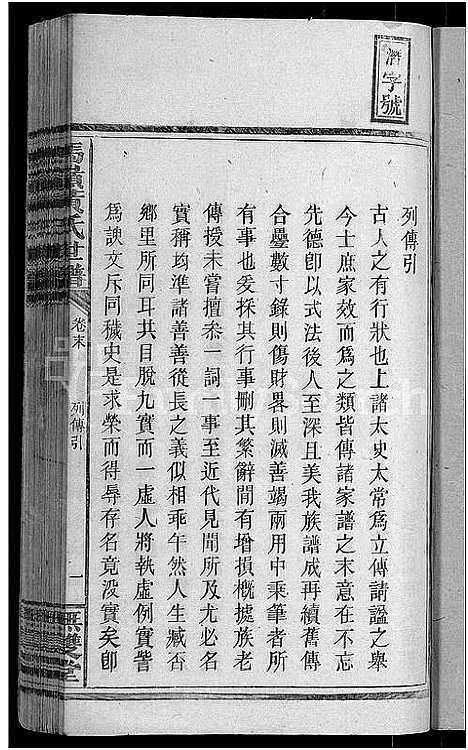 淵字號
列傳引
古人之有行狀也上諸太史太常爲立傳請謚之舉
今士庶家效而爲之類皆傳諸家譜之末意在不忘
先德卽以式法後人至深且美我族譜成再續舊傳
合疊數寸錄則傷財畧則滅善竭兩用中秉筆者所
有事也爰採其行事刪其繁辭間有增損概據族老
傳授未嘗擅叅一詞一事至近代見聞所及尤必名
實稱均準諸善善從長之義似相乖午然人生臧否
鄉里所同耳其目脫九實而一虛人將執虛例實訾
爲諛文斥同穢史是求榮而得辱存名竟没實矣卽
氏世譜
卷末
列傳引
一
雙堂